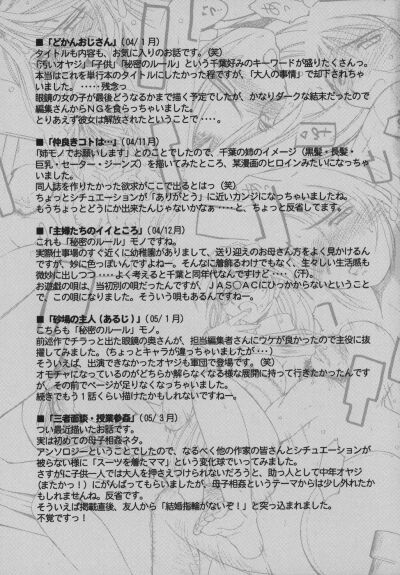 ■「どかんおじさん」(04/1月)
タイトルも内容も、お気に入りのお話です。(笑)
「汚いオヤジ」「子供」「秘密のルール」という千葉好みのキーワードが盛りだくさんっ。
本当はこれを単行本のタイトルにしたかった程ですが、「大人の事情」で却下されちゃ
いました。・・・・・残念っ
眼鏡の女の子が最後どうなるかまで描く予定でしたが、かなりダークな結末だったので
編集さんからＮＧを食らっちゃいました。
とりあえず彼女は解放されたということで・・・・。
■「仲良きコトは…」(04/11月)
「姉モノでお願いします」とのことでしたので、千葉の姉のイメージ(黒髪・長髪・
巨乳・セーター・ジーンズ)を描いてみたところ、某漫画のヒロインみたいになっちゃ
いました。
同人誌を作りたかった欲求がここで出るとはっ(笑)
ちょっとシチュエーションが「ありがとう」に近いカンジになっちゃいましたね。
もうちょっとどうにか出来たんじゃないかなぁ・・・・と、ちょっと反省してます。
■「主婦たちのイイところ」(04/12月)
これも「秘密のルール」モノですね。
実際仕事場のすぐ近くに幼稚園がありまして、送り迎えのお母さん方をよく見かけるん
ですが、妙に色っぽいんですよねー。そんなに着飾るわけでもなく、生々しい生活感も
微妙に出しつつ・・・・よく考えると千葉と同年代なんですけど・・・・(汗)。
お遊戯の唄は、当初別の唄だったんですが、ＪＡＳ○ＡＣにひっかからないということ
で、この唄になりました。そういう唄もあるんですねー。
■「砂場の主人(あるじ)」(05/1月)
こちらも「秘密のルール」モノ。
前述作でチラっと出た眼鏡の奥さんが、担当編集者さんにウケが良かったので主役に抜
擢してみました。(ちょっとキャラが違っちゃいましたが・・・)
そういえば、出演できなかったオヤジも軍団で登場です。(笑)
オモチャになっているのがどちらか解らなくなる様な展開に持って行きたかったんです
が、その前でページが足りなくなっちゃいました。
続きでもう１話くらい描けたかもしれないですねー。
■「三者面談・授業参姦」(05/3月)
つい最近描いたお話です。
実は初めての母子相姦ネタ。
アンソロジーということでしたので、なるべく他の作家の皆さんとシチュエーションが
被らない様に「スーツを着たママ」という変化球でいってみました。
さすがに子供一人では大人を押さえつけられないだろうと、助っ人として中年オヤジ
(またかっ！)にがんばってもらいましたが、母子相姦というテーマからは少し外れたか
もしれませんね。反省です。
そういえば掲載直後、友人から「結婚指輪がないぞ！」と突っ込まれました。
不覚ですっ！